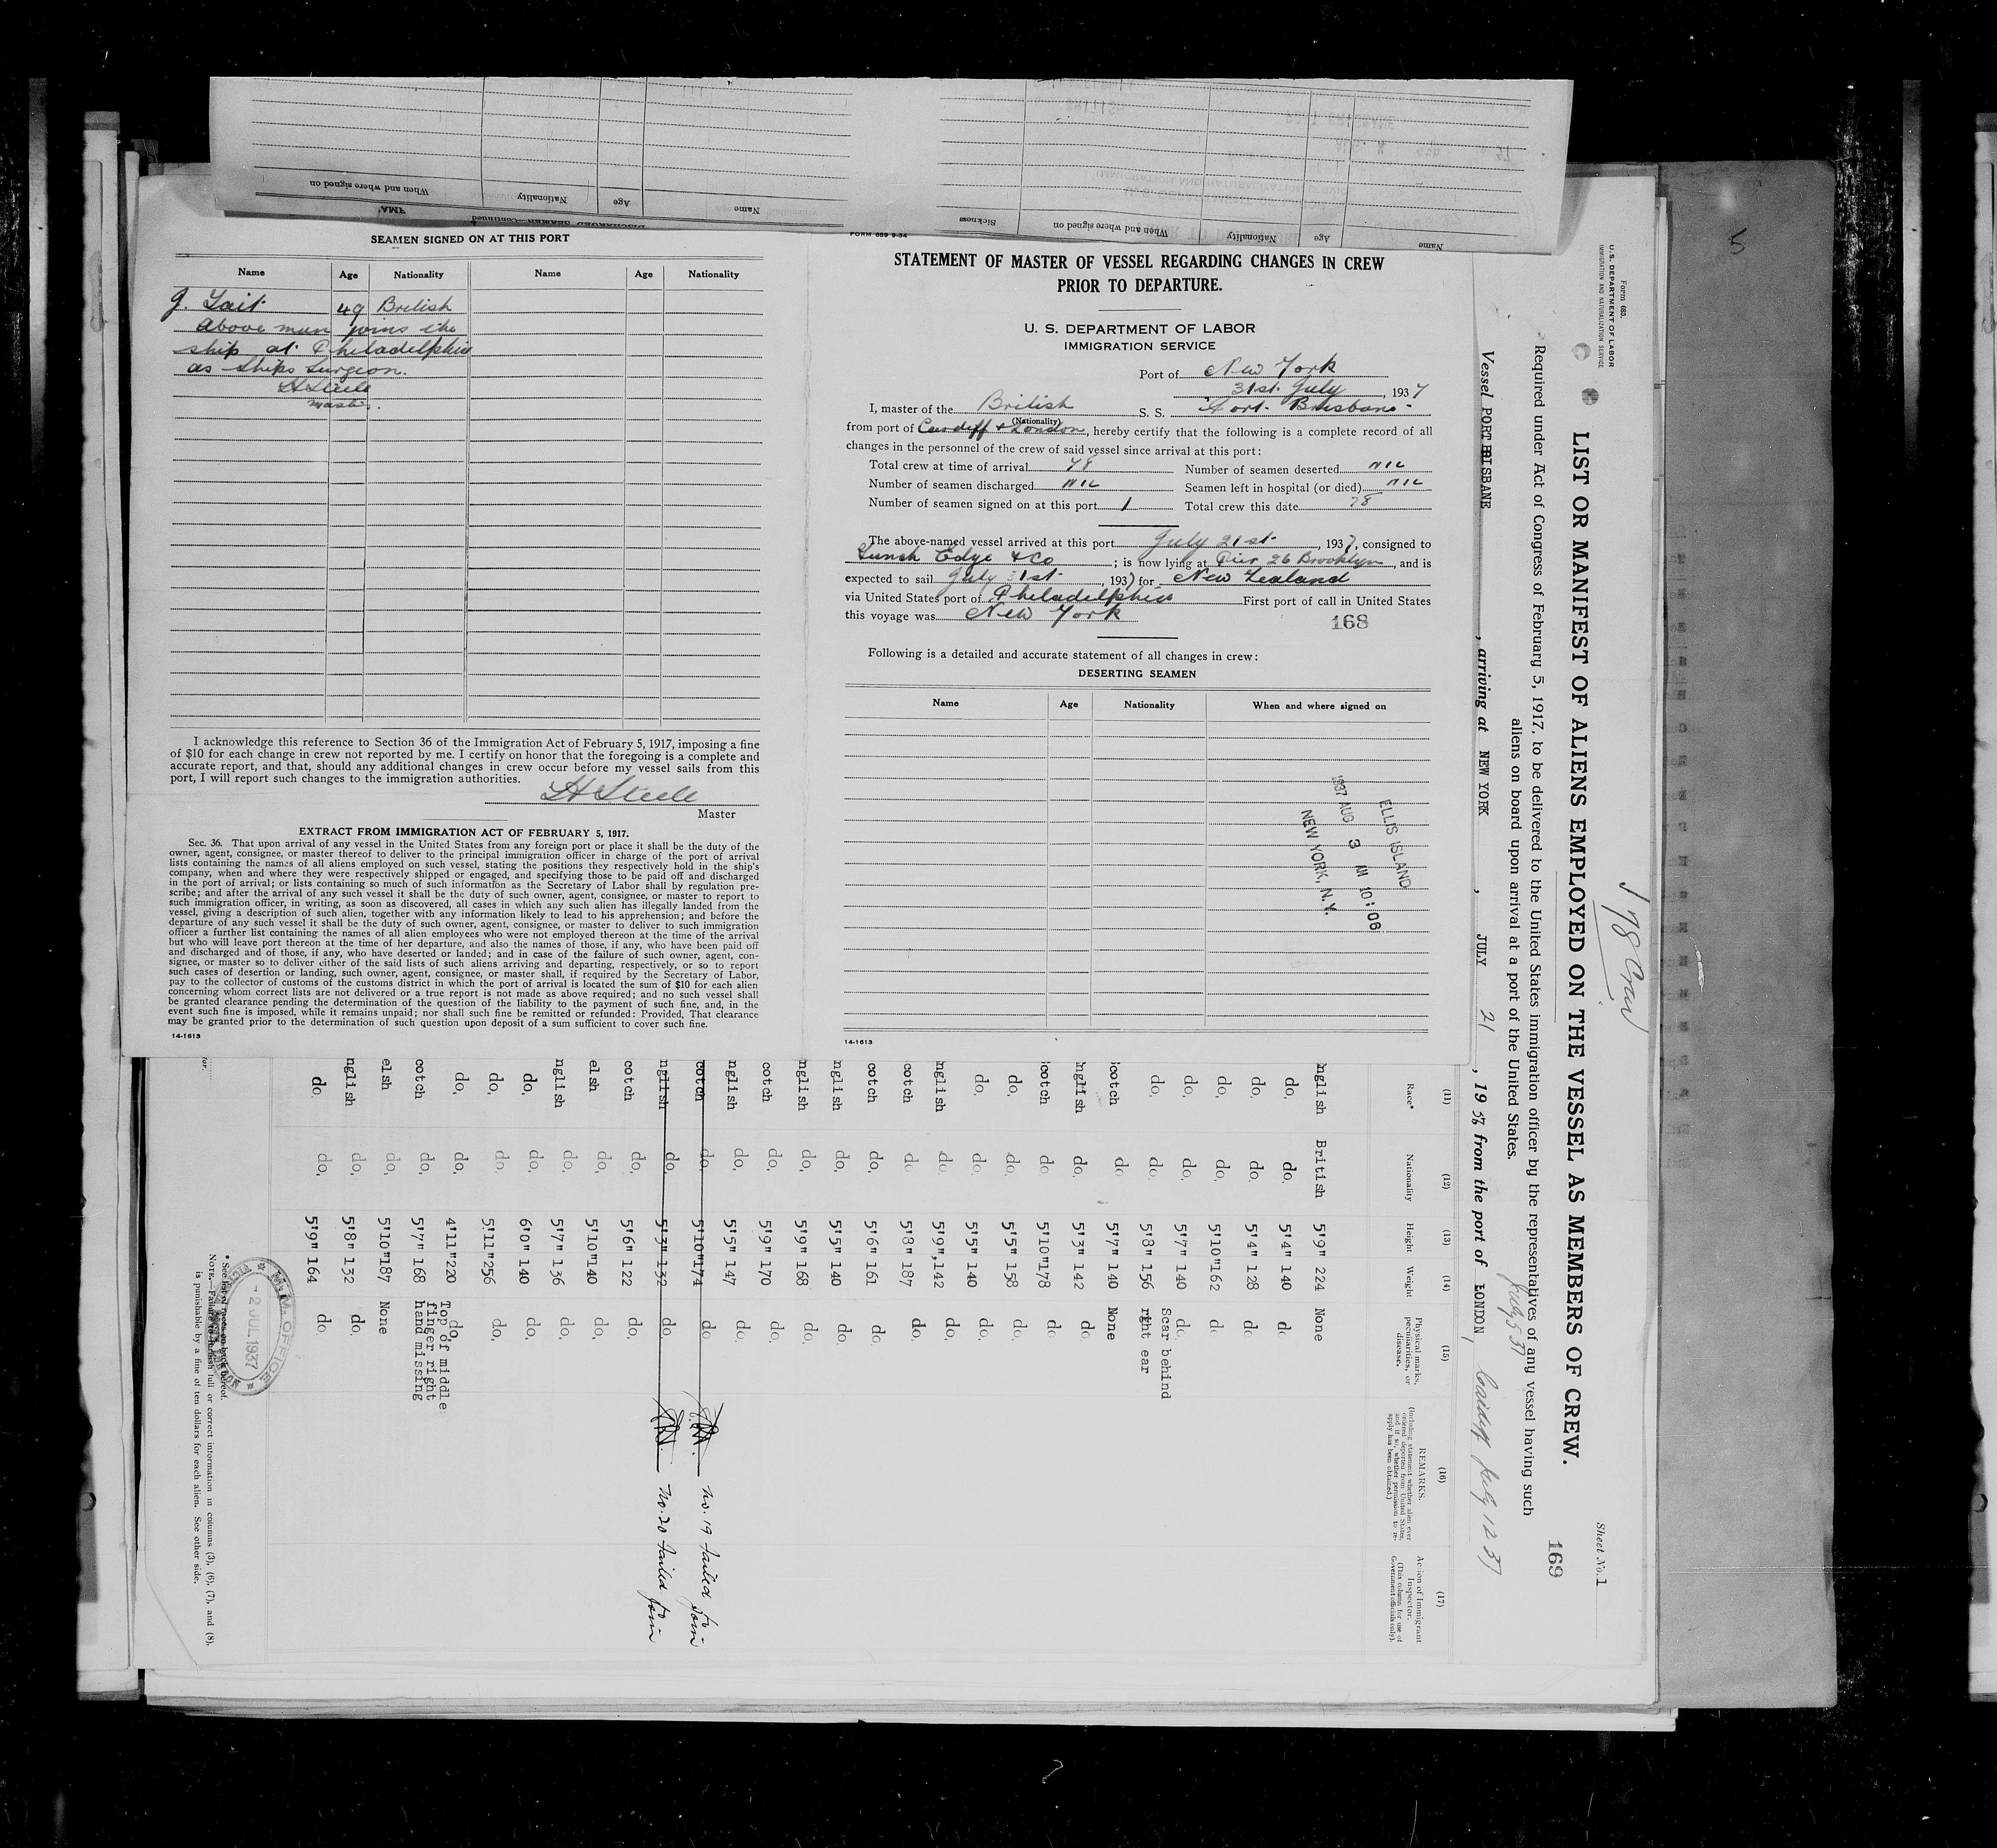 SEAMEN SIGNED ON AT THIS PORT
Name Age Nationality Name Age Nationality
J. Tait 49 British
Above man joins the
ship at Philadelphia
as Ships Surgeon.
H Steele
Master.
I acknowledge this reference to Section 36 of the Immigration Act of February 5, 1917, imposing a fine
of $10 for each change in crew not reported by me. I certify on honor that the foregoing is a complete and
accurate report, and that, should any additional changes in crew occur before my vessel sails from this
port, I will report such changes to the immigration authorities.
H Steele
Master
EXTRACT FROM IMMIGRATION ACT OF FEBRUARY 5, 1917.
Sec. 36. That upon arrival of any vessel in the United States from any foreign port or place it shall be the duty of the
owner, agent, consignee, or master thereof to deliver to the principal immigration officer in charge of the port of arrival
lists containing the names of all aliens employed on such vessel, stating the positions they respectively hold in the ship's
company, when and where they were respectively shipped or engaged, and specifying those to be paid off and discharged
in the port of arrival; or lists containing so much of such information as the Secretary of Labor shall by regulation pre-
scribe; and after the arrival of any such vessel it shall be the duty of such owner, agent, consignee, or master to report to
such immigration officer, in writing, as soon as discovered, all cases in which any such alien has illegally landed from the
vessel, giving a description of such alien, together with any information likely to lead to his apprehension; and before the
departure of any such vessel it shall be the duty of such owner, agent, consignee, or master to deliver to such immigration
officer a further list containing the names of all alien employees who were not employed thereon at the time of the arrival
but who will leave port thereon at the time of her departure, and also the names of those, if any, who have been paid off
and discharged and of those, if any, who have deserted or landed; and in case of the failure of such owner, agent, con-
signee, or master so to deliver either of the said lists of such aliens arriving and departing, respectively, or so to report
such cases of desertion or landing, such owner, agent, consignee, or master shall, if required by the Secretary of Labor,
pay to the collector of customs of the customs district in which the port of arrival is located the sum of $10 for each alien
concerning whom correct lists are not delivered or a true report is not made as above required; and no such vessel shall
be granted clearance pending the determination of the question of the liability to the payment of such fine, and, in the
event such fine is imposed, while it remains unpaid; nor shall such fine be remitted or refunded: Provided, That clearance
may be granted prior to the determination of such question upon deposit of a sum sufficient to cover such fine.
14-1613
FORM 689 9-34
STATEMENT OF MASTER OF VESSEL REGARDING CHANGES IN CREW
PRIOR TO DEPARTURE.
U. S. DEPARTMENT OF LABOR
IMMIGRATION SERVICE
Port of New York
31st July, 1937
I, master of the British S. S. "Port Brisbane"
(Nationality)
from port of Cardiff & London, hereby certify that the following is a complete record of all
changes in the personnel of the crew of said vessel since arrival at this port:
Total crew at time of arrival 78 Number of seamen deserted NIL
Number of seamen discharged NIL Seamen left in hospital (or died) NIL
Number of seamen signed on at this port 1 Total crew this date 78
The above-named vessel arrived at this port July 21st, 1937, consigned to
Funch Edye & Co; is now lying at Pier 26 Brooklyn, and is
expected to sail July 31st, 1937 for New Zealand
via United States port of Philadelphia First port of call in United States
this voyage was New York
168
Following is a detailed and accurate statement of all changes in crew:
DESERTING SEAMEN
Name Age Nationality When and where signed on
ELLIS ISLAND
1937 AUG 3 AM 10:06
NEW YORK, N.Y.
14-1613
Name Age Nationality When and where signed on
Name Age Nationality When and where signed on Sickness
5
Form 680.
U. S. DEPARTMENT OF LABOR
IMMIGRATION AND NATURALIZATION SERVICE
Sheet No. 1
78 Crew
LIST OR MANIFEST OF ALIENS EMPLOYED ON THE VESSEL AS MEMBERS OF CREW.
169
Required under Act of Congress of February 5, 1917, to be delivered to the United States immigration officer by the representatives of any vessel having such
aliens on board upon arrival at a port of the United States.
July 5 37
Vessel PORT BRISBANE, arriving at NEW YORK, JULY 21, 1937 from the port of LONDON, Cardiff July 12 37
(11) (12) (13) (14) (15) (16) (17)
Race* Nationality Height Weight Physical marks, peculiarities, or disease. REMARKS. (Including statement whether alien ever ordered deported from United States, and if so, whether permission to reapply has been obtained.) Action of Immigrant Inspector. (This column for use of Government officials only).
nglish British 5'9" 224 None
do, do, 5'4" 140 do
do, do, 5'4" 128 do
do, do, 5'10" 162 do
do, do, 5'7" 140 do,
do, do, 5'8" 156 Scar behind
right ear
cotch do 5'7" 140 None
nglish do, 5'3" 142 do,
cotch do 5'10" 178 do
do, do, 5'5" 158 do,
do, do, 5'5" 140 do,
nglish do, 5'9", 142 do,
cotch do 5'8" 187 do,
cotch do, 5'6" 161 do,
nglish do, 5'5" 140 do,
nglish do, 5'9" 168 do,
cotch do, 5'9" 170 do,
nglish do, 5'5" 147 do,
cotch do, 5'10" 174 do no. 19 failed to join
nglish do, 5'3" 132 do, no. 20 failed to join
cotch do, 5'6" 122 do,
elsh do, 5'10" 140 do,
nglish do, 5'7" 136 do,
do, do, 6'0" 140 do,
do, do, 5'11" 256 do,
do, do, 4'11" 220 do,
cotch do, 5'7" 168 Top of middle
finger right
hand missing
elsh do, 5'10" 187 None
nglish do, 5'8" 132 do,
do, do, 5'9" 164 do,
* See list of races on back hereof.
NOTE.—Failure to furnish full or correct information in columns (3), (6), (7), and (8),
is punishable by a fine of ten dollars for each alien. See other side.
M.M. OFFICE
2 JUL 1937